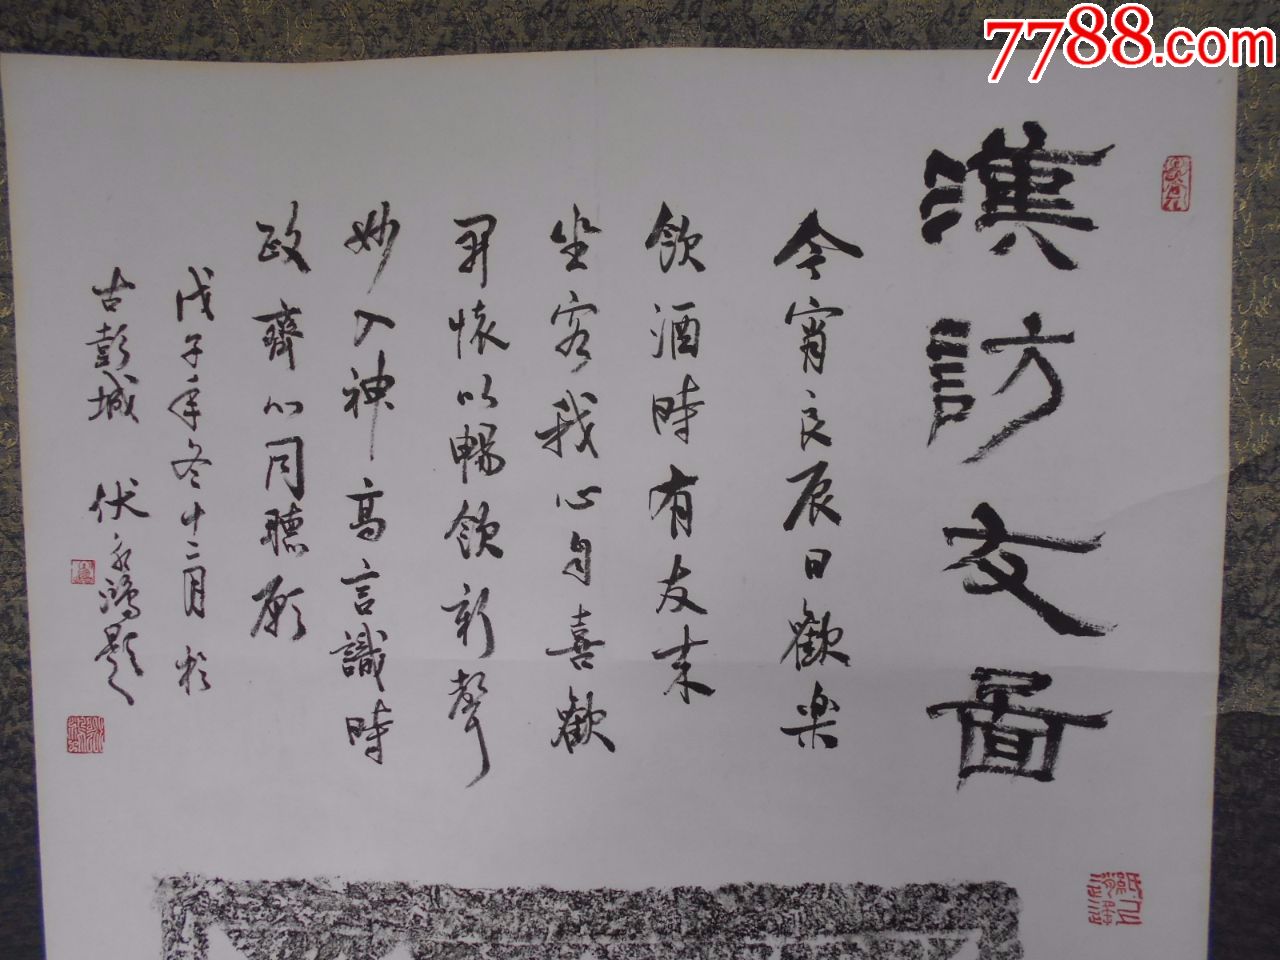 漢訪友圖
今宵良辰日歡樂
飲酒時有友来
坐客我心自喜歡
開懷以暢飲新聲
妙入神高言識時
政齊心同聽願
戊子年冬十二月於
古彭城 伏永鴻題
7788.com